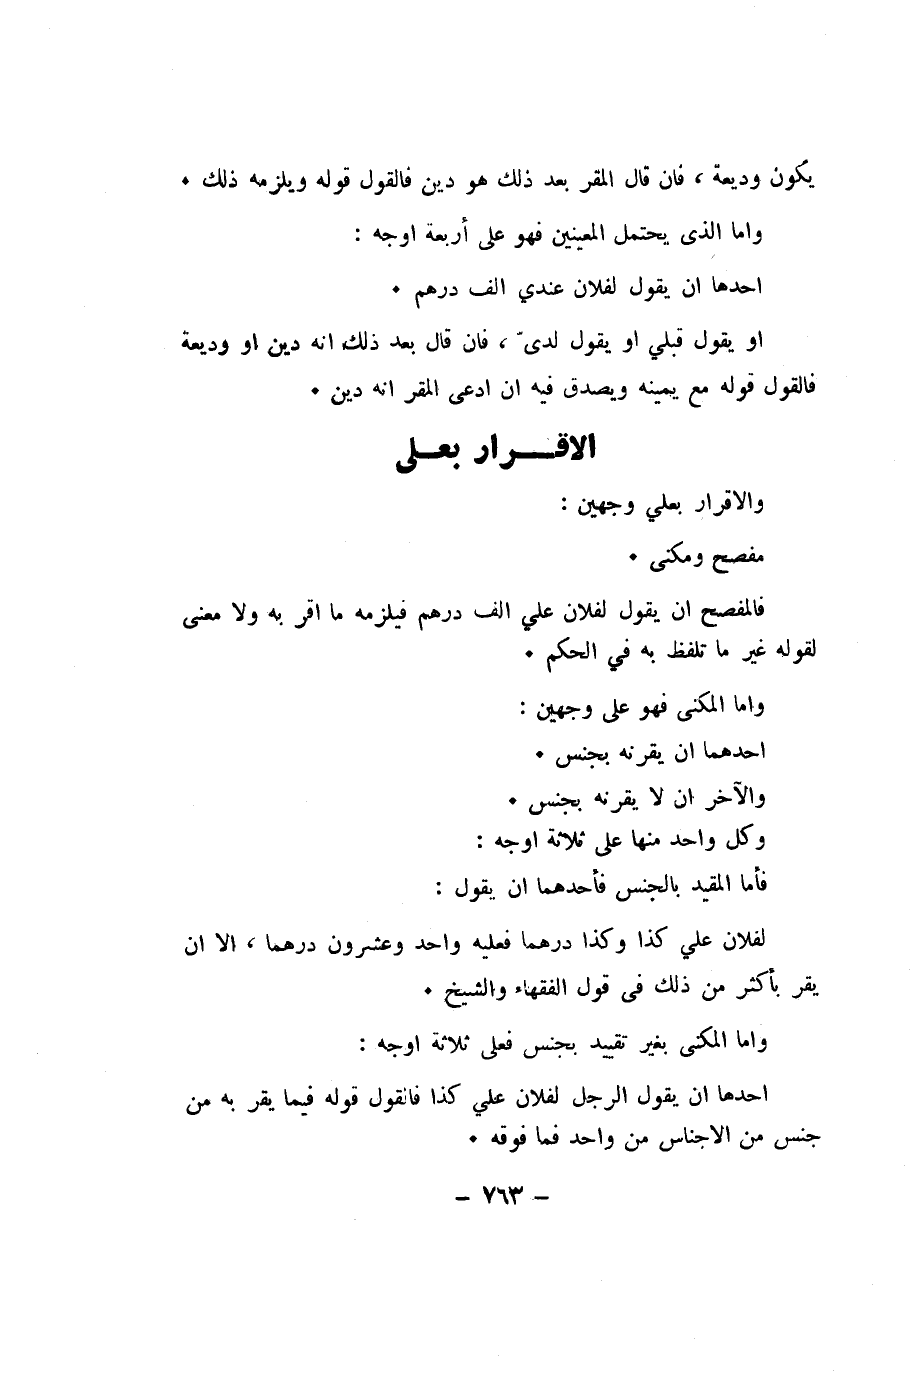 يكون وديعة ، فان قال المقر بعد ذلك هو دين فالقول قوله ويلزمه ذلك ٠
واما الذى يحتمل المعينين فهو على أربعة اوجه :
احدها ان يقول لفلان عندي الف درهم ٠
او يقول قبلي او يقول لدىّ ، فان قال بعد ذلك انه دين او وديعة
فالقول قوله مع يمينه ويصدق فيه ان ادعى المقر انه دين ٠
الاقـــرار بعـلى
والاقرار بعلي وجهين :
مفصح ومكنى ٠
فالمفصح ان يقول لفلان علي الف درهم فيلزمه ما اقر به ولا معنى
لقوله غير ما تلفظ به في الحكم ٠
واما المكنى فهو على وجهين :
احدهما ان يقرنه بجنس ٠
والآخر ان لا يقرنه بجنس ٠
وكل واحد منها على ثلاثة اوجه :
فأما المقيد بالجنس فأحدهما ان يقول :
لفلان علي كذا وكذا درهما فعليه واحد وعشرون درهما ، الا ان
يقر بأكثر من ذلك فى قول الفقهاء والشيخ ٠
واما المكنى بغير تقييد بجنس فعلى ثلاثة اوجه :
احدها ان يقول الرجل لفلان علي كذا فالقول قوله فيما يقر به من
جنس من الاجناس من واحد فما فوقه ٠
– ٧٦٣ –